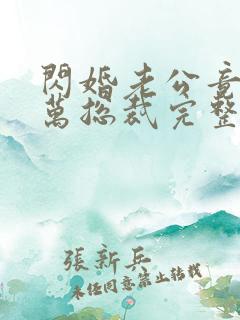 閃婚老公竟
萬總裁完整
張新兵
未經同意禁止轉載